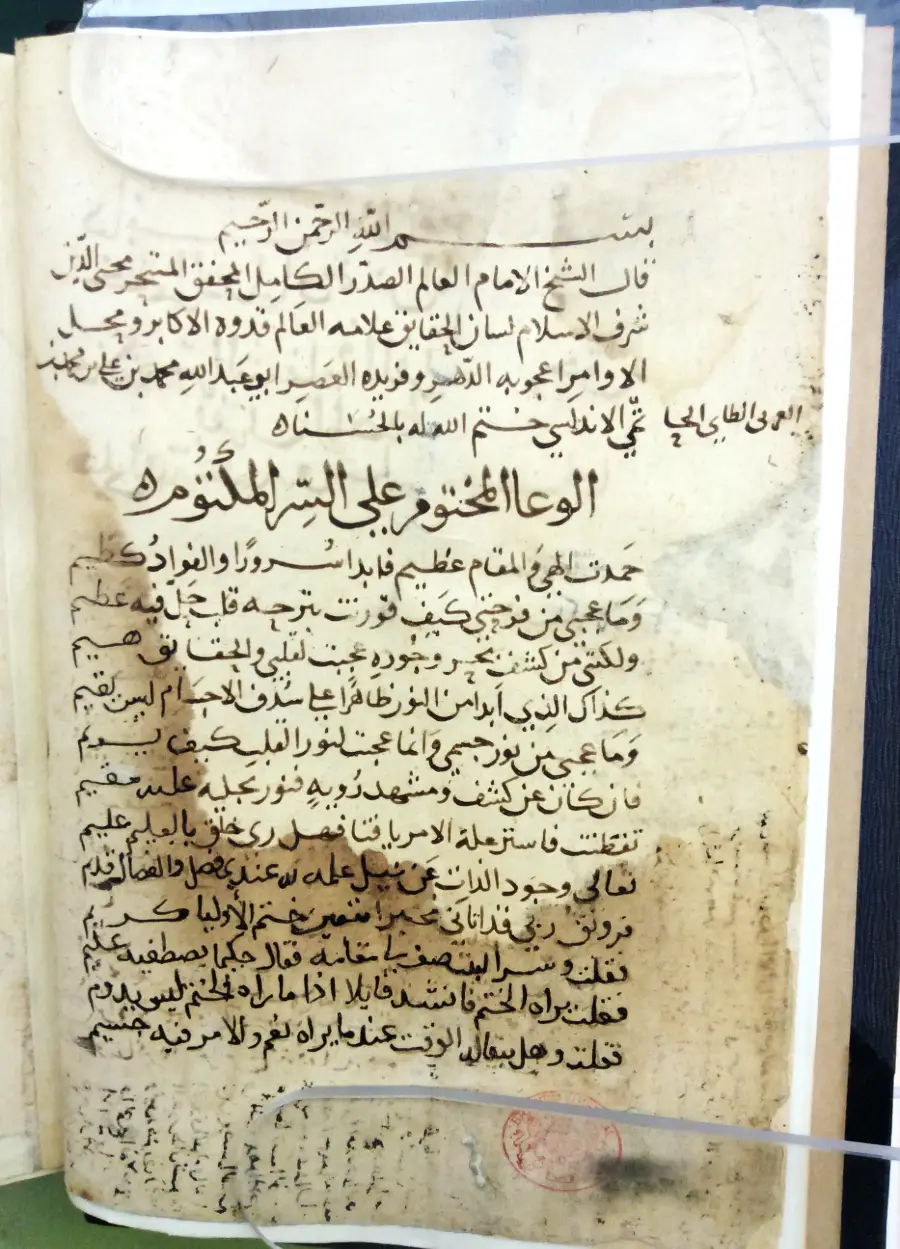 بسم الله الرحمن الرحيم
قال الشيخ الامام العالم الصدر الكامل المحقق المتبحر محيى الدين
شرف الاسلام لسان الحقايق علامه العالم قدوه الاكابر ومحل
الاوامر اعجوبه الدهر وفريده العصر ابو عبد الله محمد بن على بن محمد بن
العربى الطاى الحا تمي الاندلسي ختم الله له بالحسناه
الوعا المختوم على السر المكتوم
حمدت الهي والمقام عظيم فابدا سرورًا والفواد كظيم
وما عجبي من فرحتي كيف قورنت بترحه قلب حل فيه عظيم
ولكنني من كشف بحر وجوده عجبت لقلبي والحقايق هيم
كذاك الذي ابدا من النور ظاهرا على سدف الاجسام ليس يقيم
وما عجبي من نور جسمي وانما عجبت لنور القلب كيف يريم
فان كان عن كشف ومشهد رويه فنور تجليه عليه مقيم
تفطنت فاستر علة الامر يا فتا فهل رى خلق بالعليم عليم
تعالى وجود الذات عن نيل علمه به عند فصل والفصال قديم
فرونق ربى قد اتانى مخبرا بتعيين ختم الاوليا كريم
فقلت وسر البيت صف لي مقامه فقال حكيما يصطفيه حكيم
فقلت يراه الختم فاشتد قايلا اذا ما راه الختم ليس يدوم
فقلت وهل يبقا له الوقت عندما يراه نعم والامر فيه جسيم